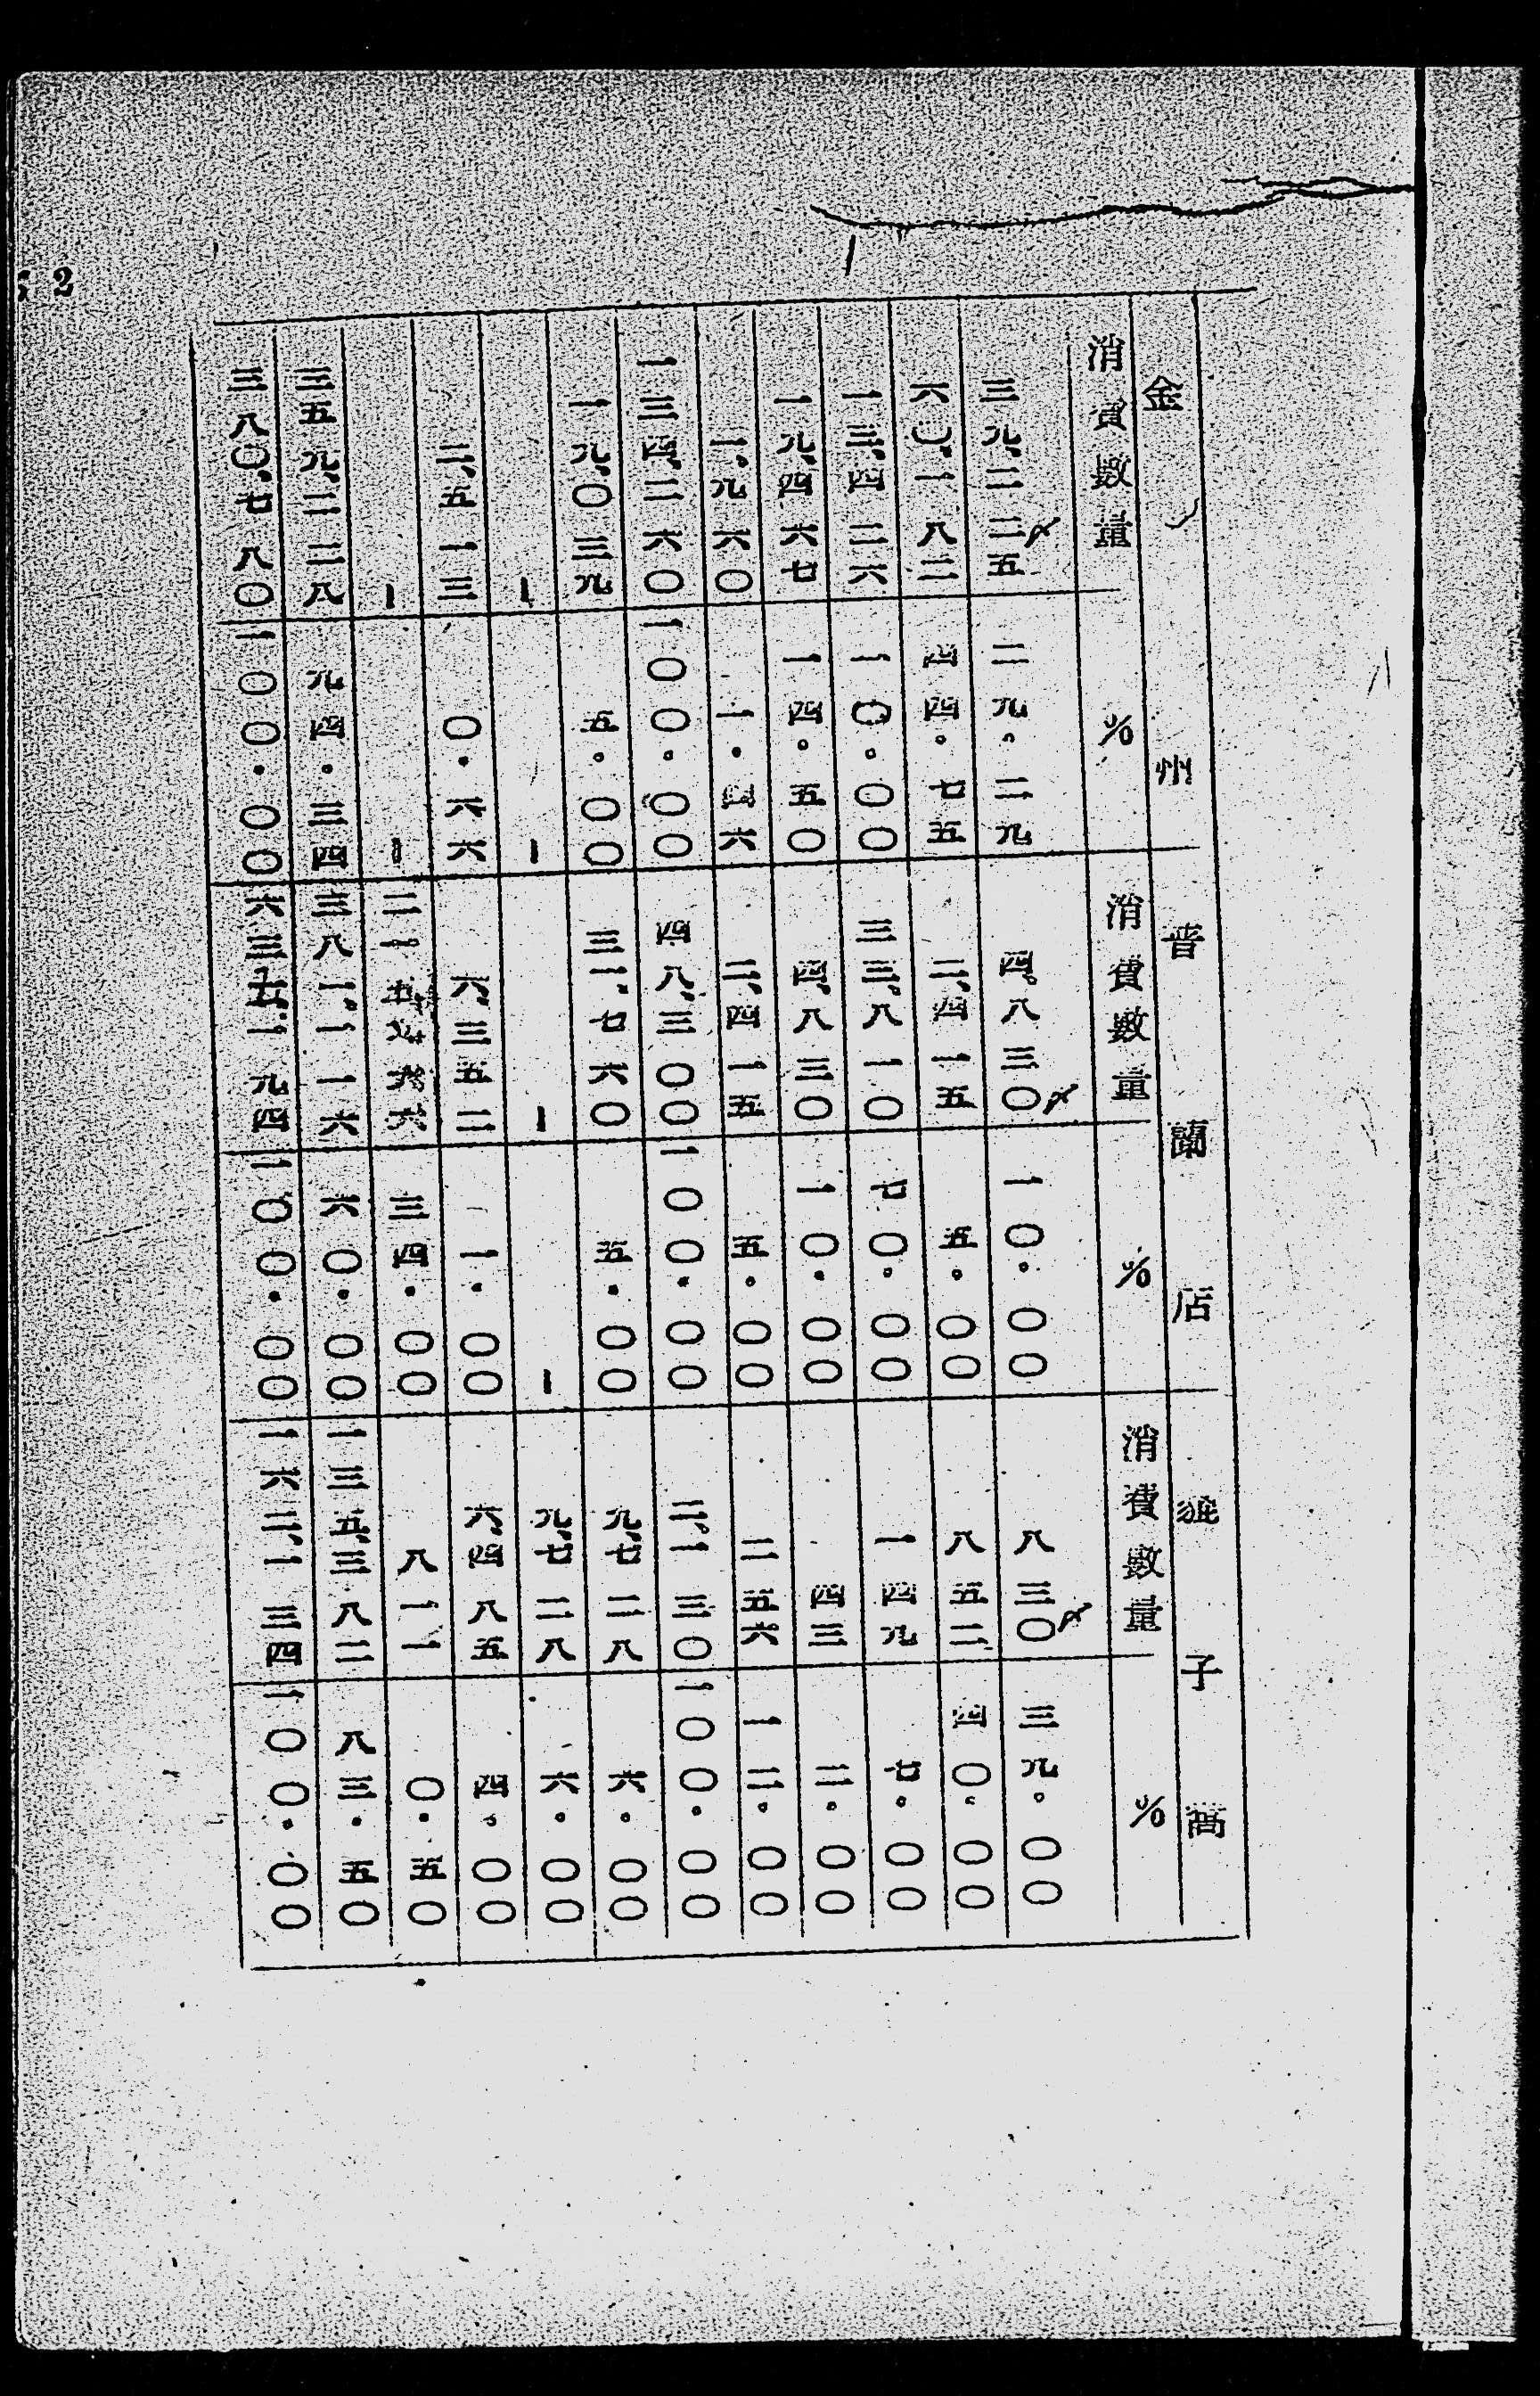 金州 普蘭店 貔子窩
消費數量 % 消費數量 % 消費數量 %
三九,二二五〆 二九。二九 四,八三〇〆 一〇。〇〇 八三〇〆 三九。〇〇
六〇,一八二 四四。七五 二,四一五 五。〇〇 八五二 四〇。〇〇
一三,四二六 一〇。〇〇 三三,八一〇 七〇。〇〇 一四九 七。〇〇
一九,四六七 一四。五〇 四,八三〇 一〇。〇〇 四三 二。〇〇
一,九六〇 一。四六 二,四一五 五。〇〇 二五六 一二。〇〇
一三四,二六〇 一〇〇。〇〇 四八,三〇〇 一〇〇。〇〇 二,一三〇 一〇〇。〇〇
一九,〇三九 五。〇〇 三一,七六〇 五。〇〇 九,七二八 六。〇〇
ー ー ー ー 九,七二八 六。〇〇
二,五一三 〇。六六 六,三五二 一。〇〇 六,四八五 四。〇〇
ー ー 二一五,九六六 三四。〇〇 八一一 〇。五〇
三五九,二二八 九四。三四 三八一,一一六 六〇。〇〇 一三五,三八二 八三。五〇
三八〇,七八〇 一〇〇。〇〇 六三五,一九四 一〇〇。〇〇 一六二,一三四 一〇〇。〇〇
2